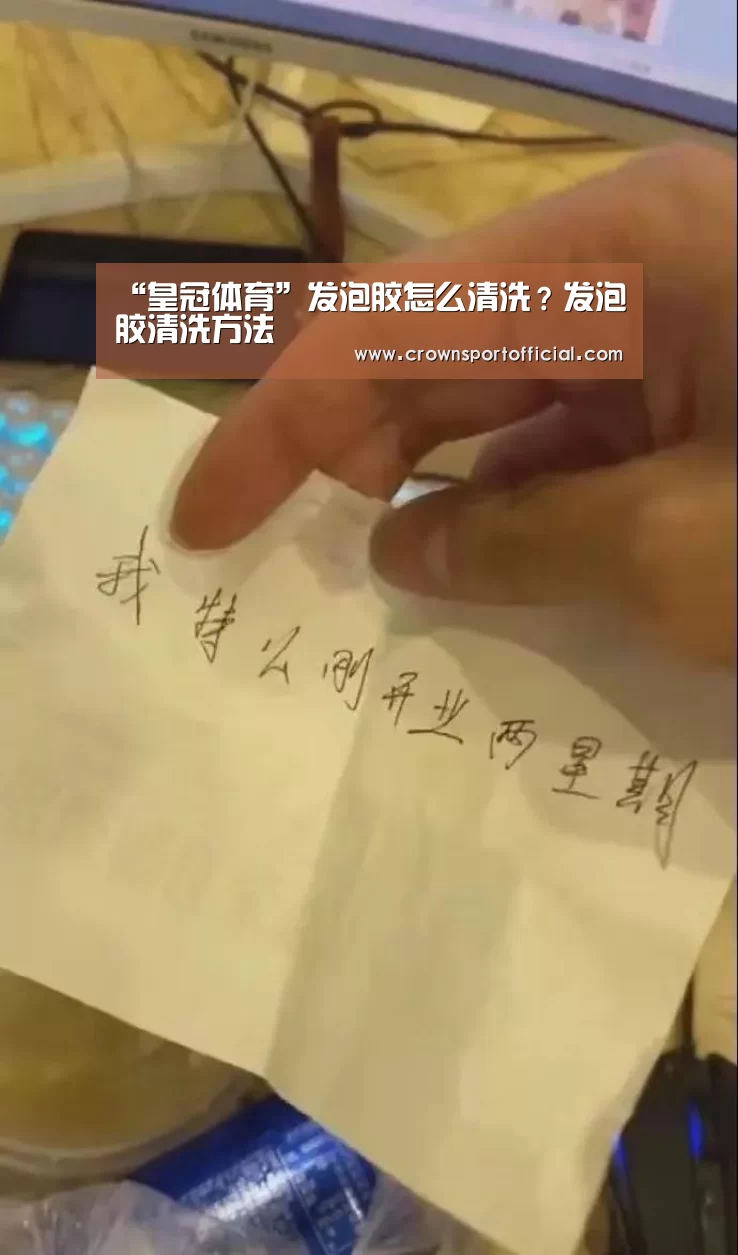 SAMSUNG
“皇冠体育”发泡胶怎么清洗？发泡
胶清洗方法
www.crownsportofficial.com
我特么刚开业两星期